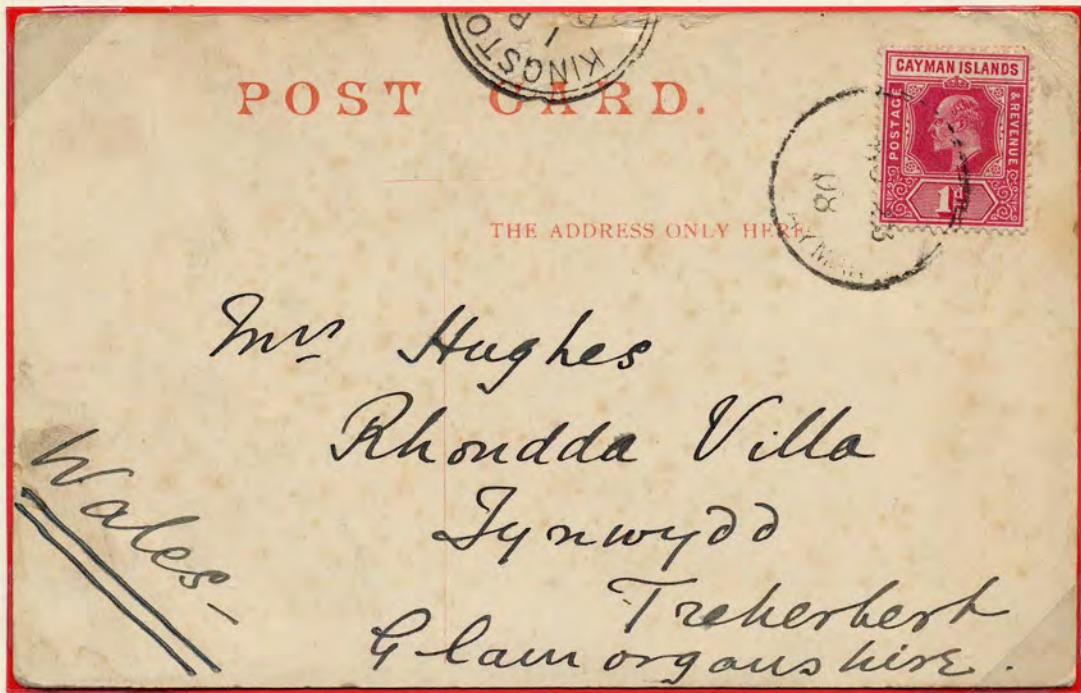 KINGSTO
POST CARD.
CAYMAN ISLANDS
POSTAGE
& REVENUE
1d
08
THE ADDRESS ONLY HERE
Mrs Hughes
Rhondda Villa
Tynwydd
Treherbert
Glamorganshire.
Wales